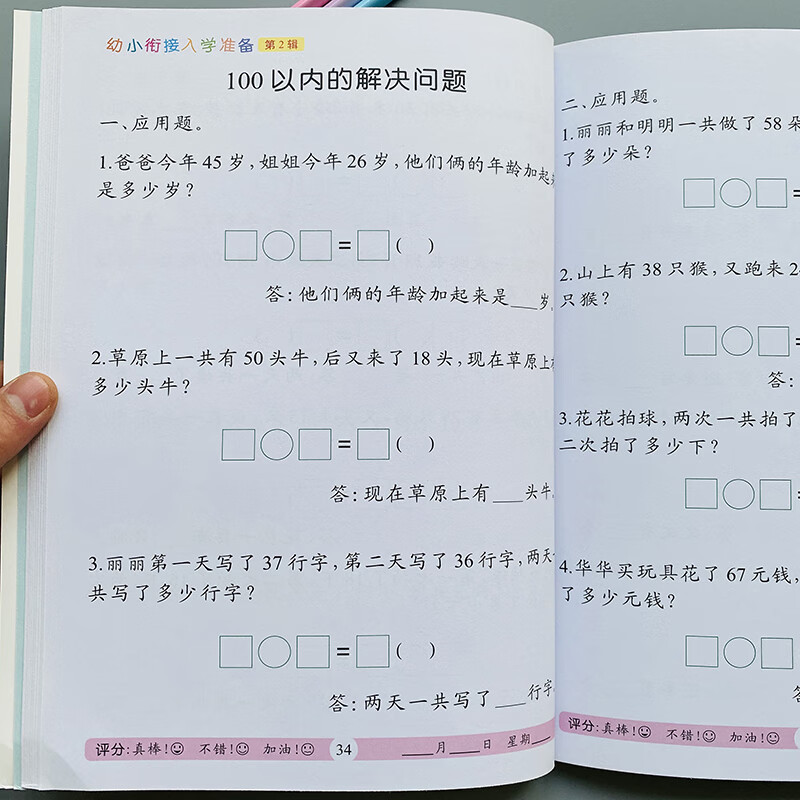 幼小衔接入学准备 第2辑
100以内的解决问题
一、应用题。
1.爸爸今年45岁,姐姐今年26岁,他们俩的年龄加起来
是多少岁?
□○□=□( )
答:他们俩的年龄加起来是___岁。
2.草原上一共有50头牛,后又来了18头,现在草原上有
多少头牛?
□○□=□( )
答:现在草原上有___头牛。
3.丽丽第一天写了37行字,第二天写了36行字,两天一
共写了多少行字?
□○□=□( )
答:两天一共写了___行字
评分:真棒! 不错! 加油! 34 ___月___日 星期___
二、应用题。
1.丽丽和明明一共做了58朵
了多少朵?
□○□=
2.山上有38只猴,又跑来2
只猴?
□○□=
答:
3.花花拍球,两次一共拍了
二次拍了多少下?
□○□=
4.华华买玩具花了67元钱,
了多少元钱?
□○□=
答
评分:真棒! 不错! 加油!